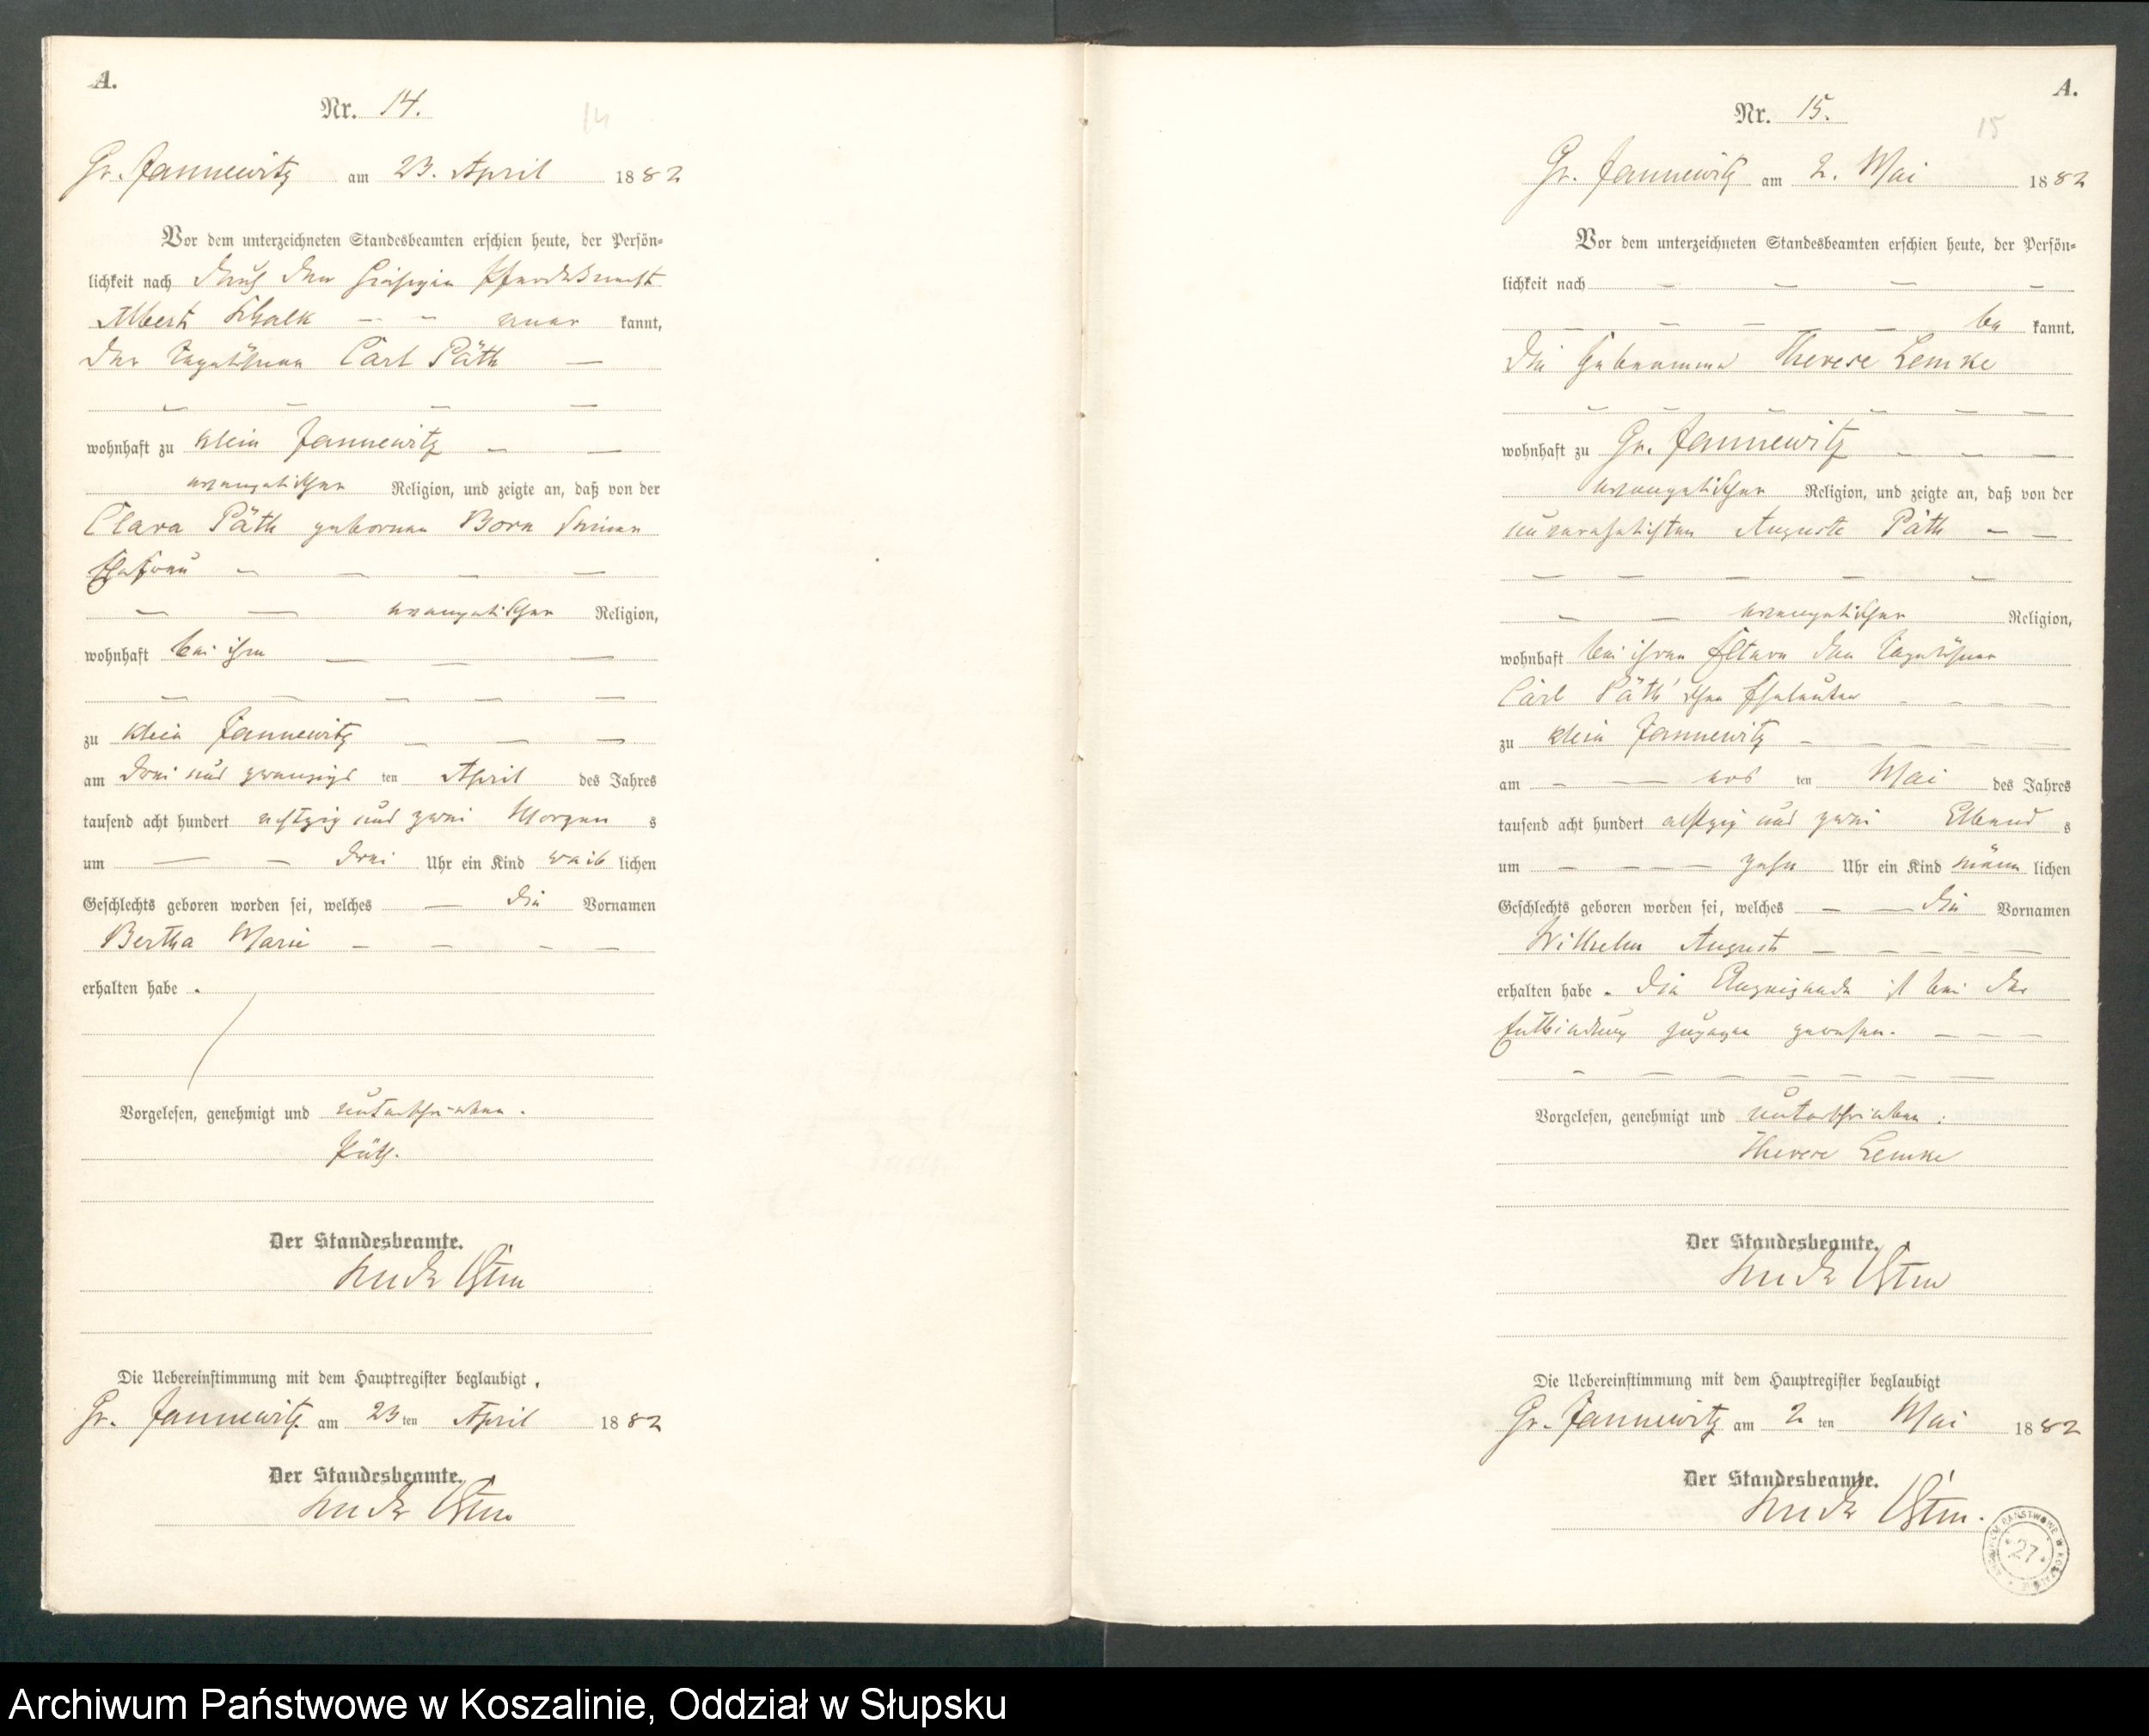 A.
Nr. 14.
14
Gr. Jannewitz am 23. April 1882
Vor dem unterzeichneten Standesbeamten erschien heute, der Persön-
lichkeit nach durch den hiesigen Pferdeknecht
Albert Schalk - - aner kannt,
der Tagelöhner Carl Päth -
wohnhaft zu Klein Jannewitz - -
evangelischer Religion, und zeigte an, daß von der
Clara Päth geborenen Born seiner
Ehefrau - - - -
- - evangelischer Religion,
wohnhaft bei ihm - - -
- - - - -
zu Klein Jannewitz - - -
am drei und zwanzigs ten April des Jahres
tausend acht hundert achtzig und zwei Morgen s
um - - drei Uhr ein Kind weib lichen
Geschlechts geboren worden sei, welches - die Vornamen
Bertha Marie - - - -
erhalten habe .
Vorgelesen, genehmigt und unterschrieben.
Päth.
Der Standesbeamte.
Die Uebereinstimmung mit dem Hauptregister beglaubigt.
Gr. Jannewitz am 23 ten April 1882
Der Standesbeamte.
A.
Nr. 15.
15
Gr. Jannewitz am 2. Mai 1882
Vor dem unterzeichneten Standesbeamten erschien heute, der Persön-
lichkeit nach - - - -
- - - - be kannt.
die Hebeamme Therese Lemke
- - - - - -
wohnhaft zu Gr. Jannewitz - - -
evangelischer Religion, und zeigte an, daß von der
unverehelichten Auguste Päth - -
- - - - -
- - evangelischer Religion,
wohnhaft bei ihren Eltern den Tagelöhner
Carl Päth'schen Eheleuten - - - -
zu Klein Jannewitz - - - - -
am - - ers ten Mai des Jahres
tausend acht hundert achtzig und zwei Abend s
um - - - - zehn Uhr ein Kind männ lichen
Geschlechts geboren worden sei, welches - - die Vornamen
Wilhelm August - - - - -
erhalten habe . Die Anzeigende ist bei der
Entbindung zugegen gewesen. - - -
- - - - - - -
Vorgelesen, genehmigt und unterschrieben.
Therese Lemke
Der Standesbeamte.
Die Uebereinstimmung mit dem Hauptregister beglaubigt
Gr. Jannewitz am 2 ten Mai 1882
Der Standesbeamte.
27
Archiwum Państwowe w Koszalinie, Oddział w Słupsku